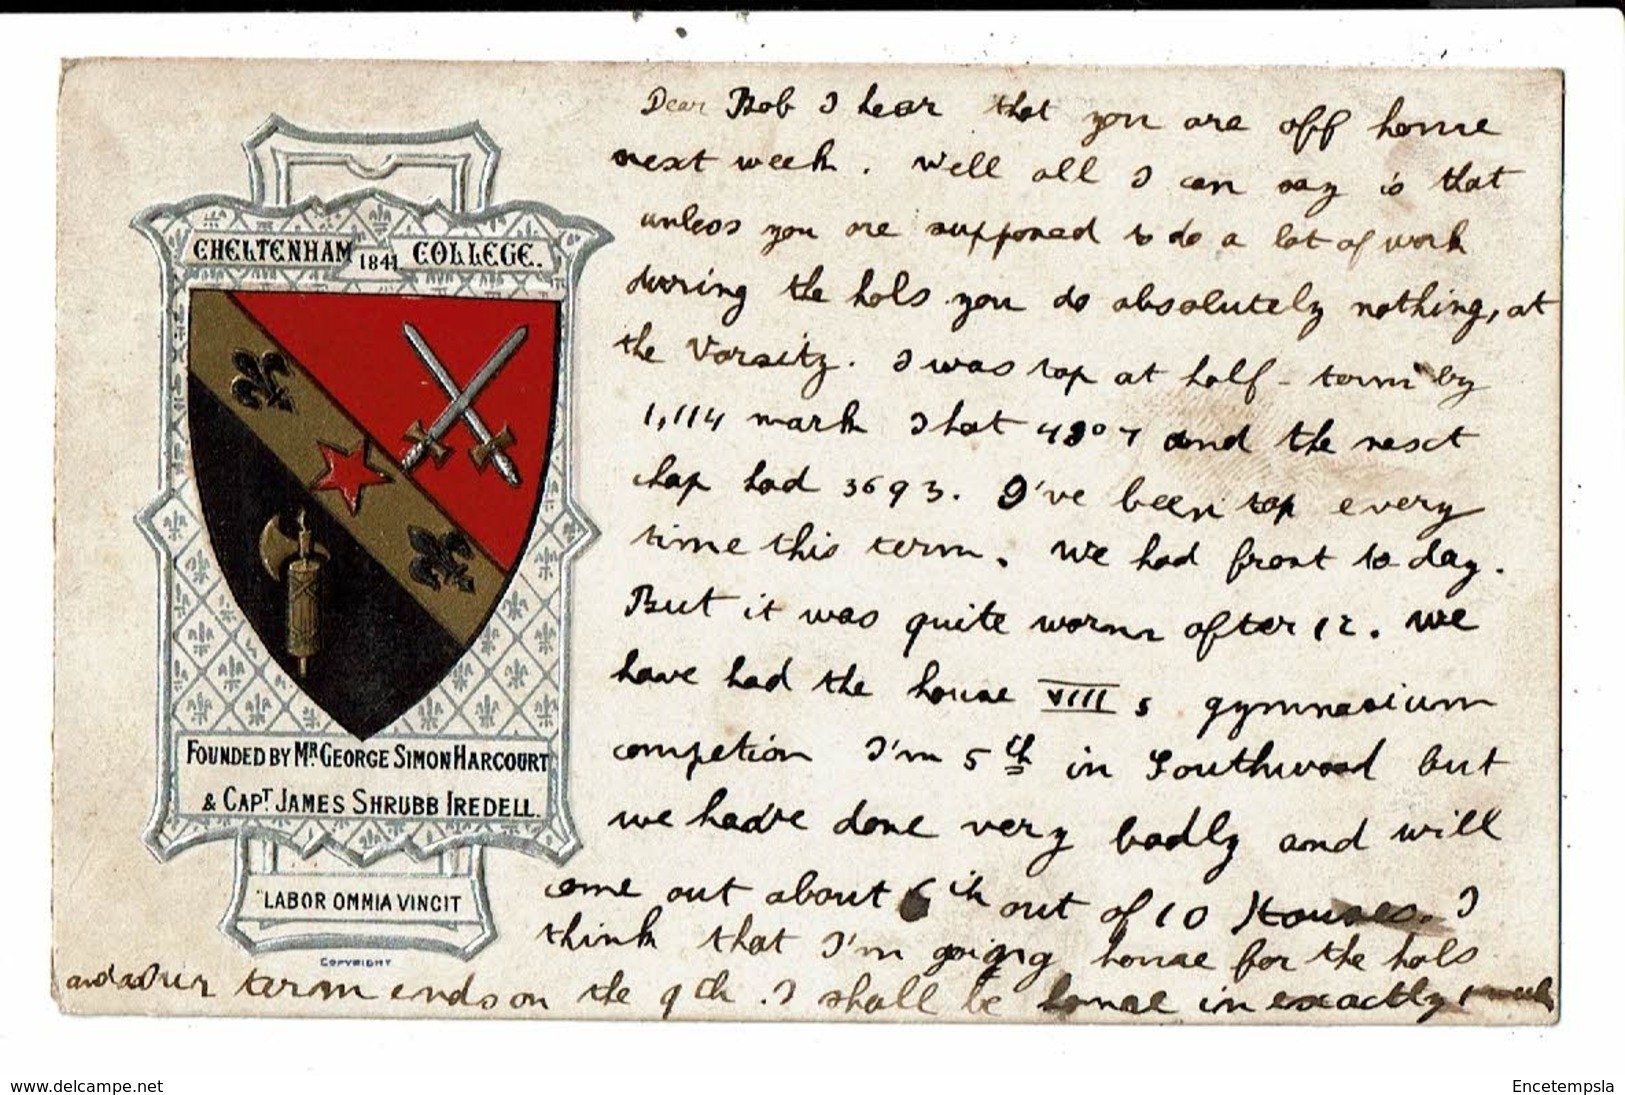 CHELTENHAM 1841 COLLEGE.
FOUNDED BY MR. GEORGE SIMON HARCOURT
& CAPT. JAMES SHRUBB IREDELL.
"LABOR OMNIA VINCIT
COPYRIGHT
Dear Bob I hear that you are off home
next week. Well all I can say is that
unless you are supposed to do a lot of work
during the hols you do absolutely nothing, at
the Varsity. I was top at half-term by
1,114 mark I hat 4807 and the next
chap had 3693. I've been top every
time this term. We had frost to day.
But it was quite warm after 12. We
have had the house VIII s gymnasium
competion I'm 5th in Southwood but
we have done very badly and will
come out about 6th out of 10 Houses. I
think that I'm going home for the hols
and our term ends on the 9th. I shall be home in exactly 1
www.delcampe.net
Encetempsla